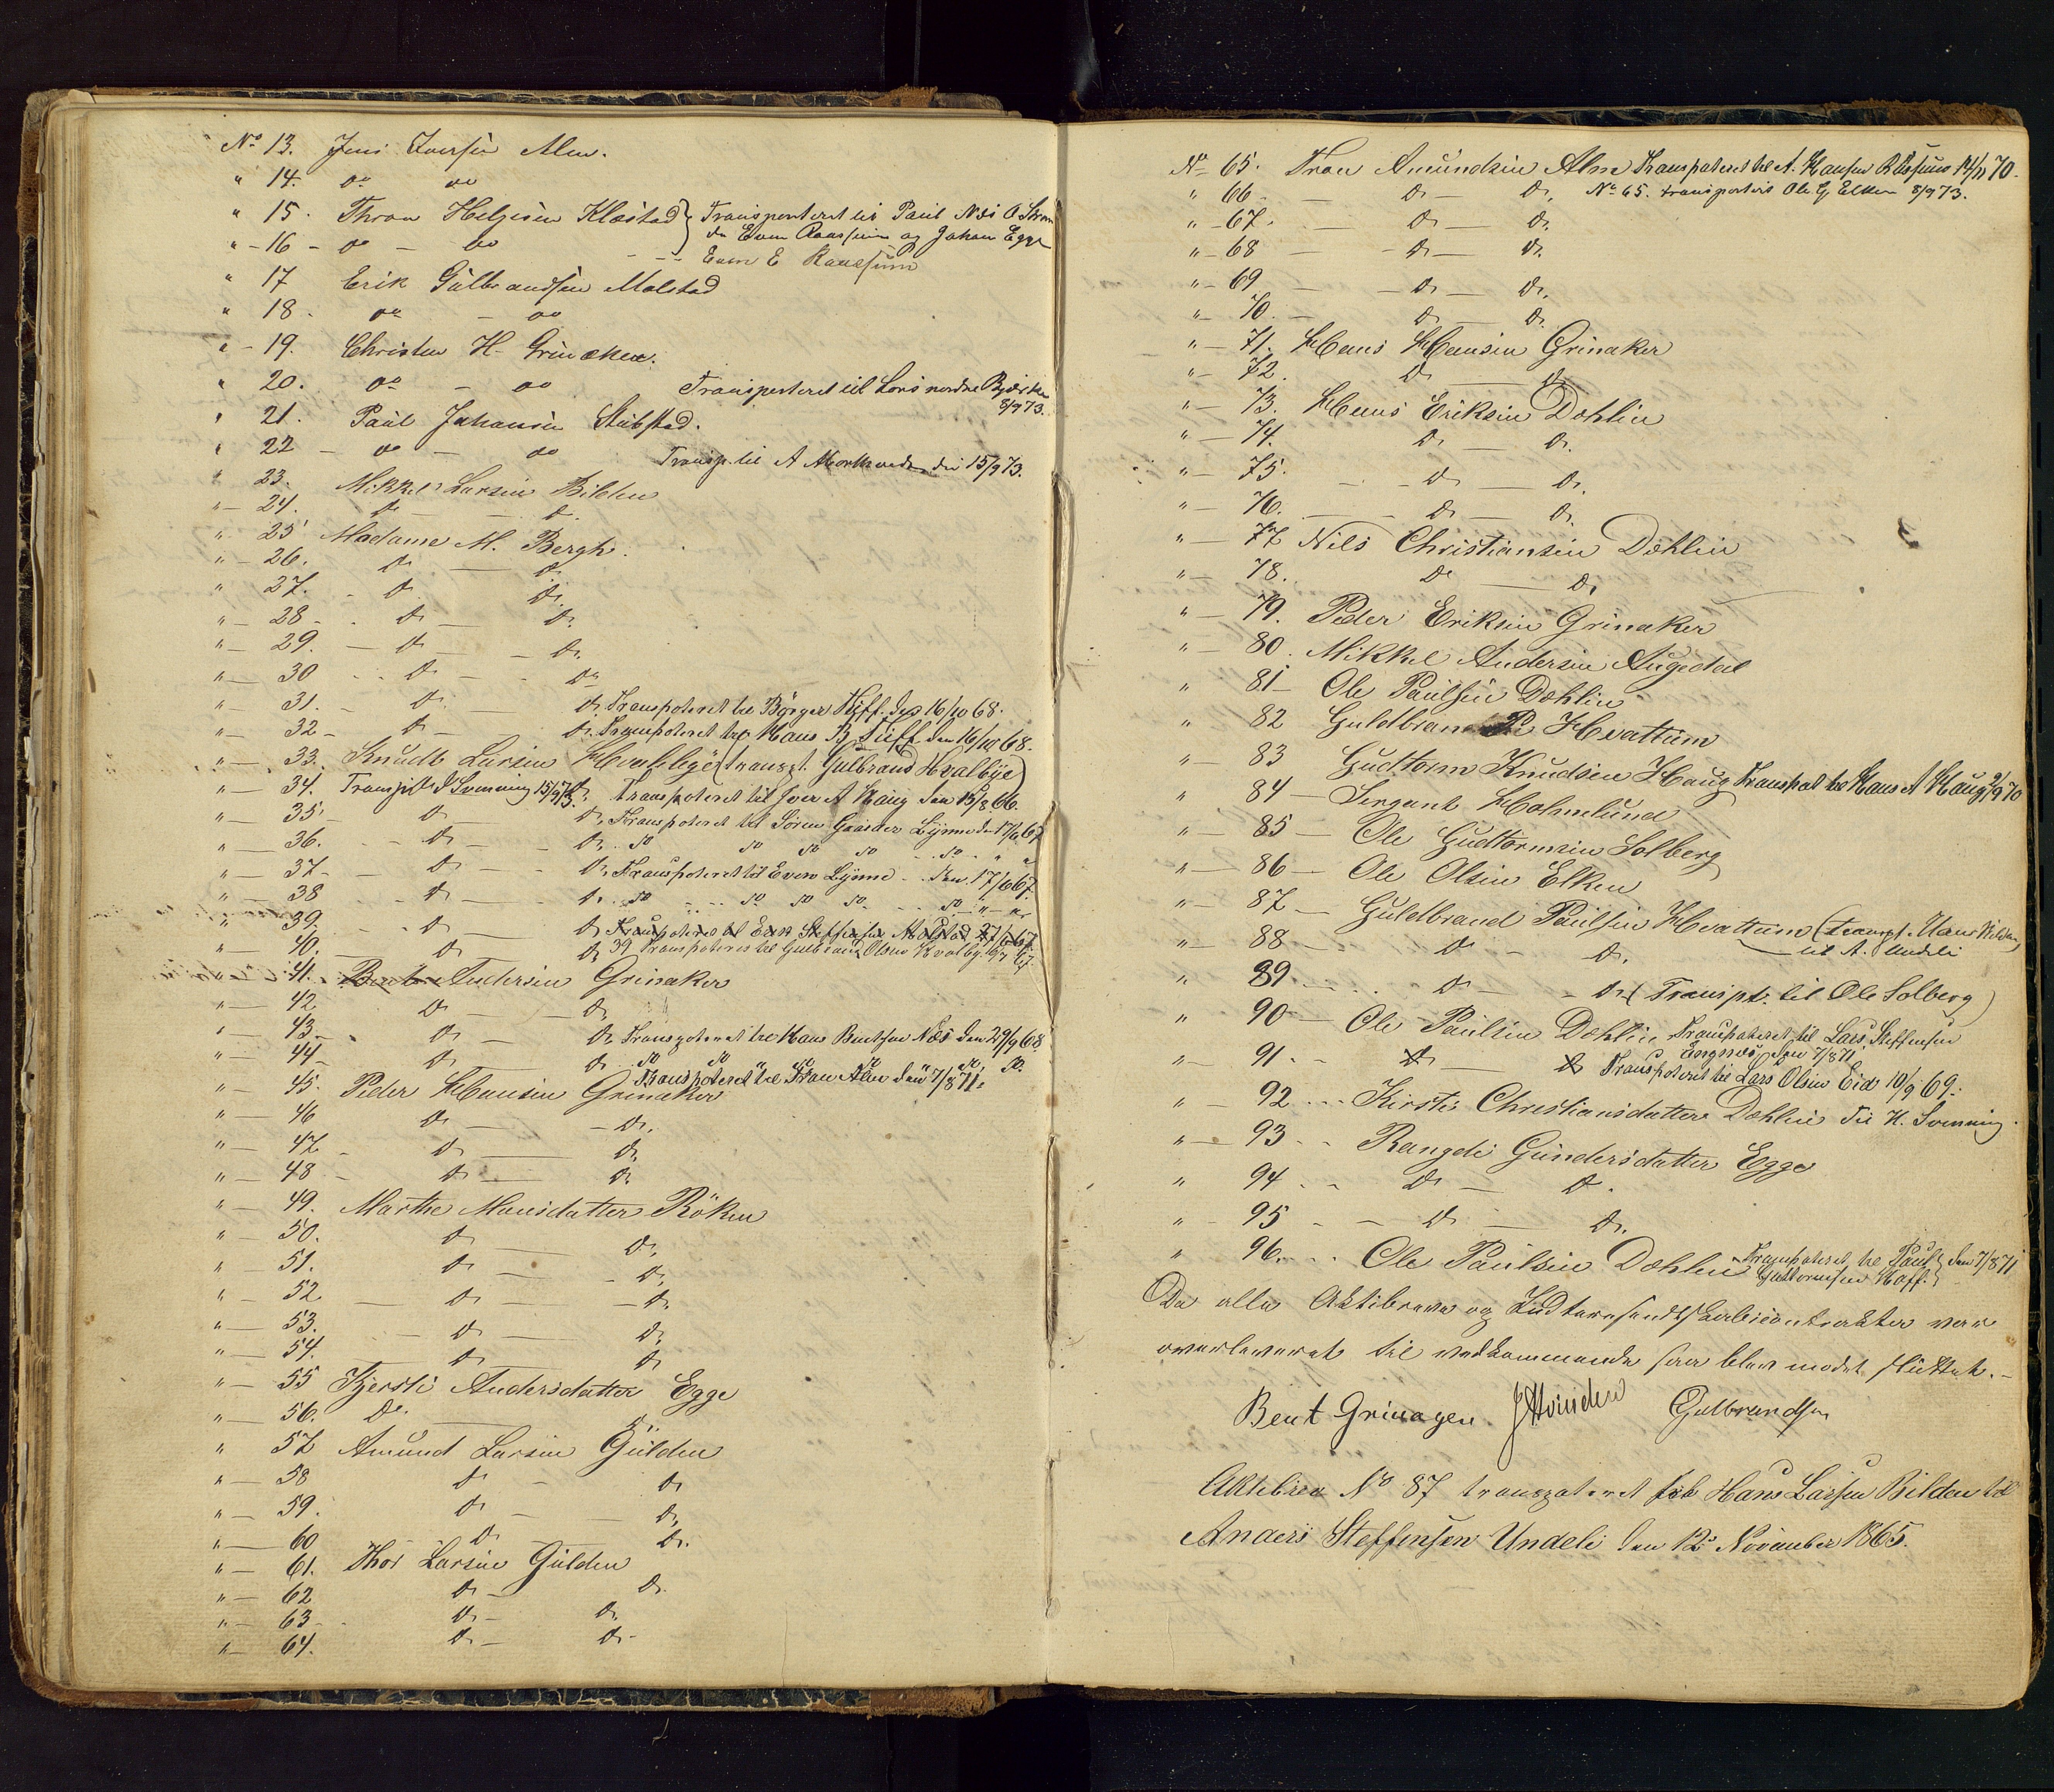 No 13. Jens Iversen Alm.
" 14. do do
" 15. Thron Helgesen Klæstad } Transporteret til Paul Næs O Strøm
" - 16 - do - do do Even Raassum og Johan Egge
- - - Even E Raassum
" 17 Erik Gulbrandsen Molstad
" 18. do - do
" - 19. Christen H. Grinaker.
" 20. do - do Transporteret til Lars nordre Bjørker
8/9 73.
" 21. Paul Johansen Stubstad.
" 22 - do - do Transp. til A Morkveden den 15/9 73.
" 23. Mikkel Larsen Bilden
" - 24. do - do.
" - 25 Madame M. Bergh.
" - 26. do — do
" 27. - do do.
" - 28 - . do — do
" - 29. — do - do.
" — 30 . . do - - do
" — 31. - do - do. Transporteret til Børger Kiff. den 16/10 68.
" — 32 - do — do. Transporteret til Hans B. Kiff den 16/10 68.
" — 33. Knudt Larsen Hvalebye (transpt. Gulbrand Hvalbye)
" — 34. Transpt. Svenning 15/9 73. do. Transporteret til Iver A Haug den 15/8 66.
" — 35 - do — do. Transporteret til Sören Gaarder Lynne den 17/6 67
" — 36. - - do - - do. . do do do do - . do - " "
" — 37 - - do - - do. Transporteret til Even Lynne - den 17/6 67.
" — 38 . . do — - do. . do - .. do do do - . do - " - "
" — 39. - do — - do Transporteret til Even Steffensen Molstad 27/6 67.
" — 40. - do do 39 Transporteres til Gulbrand Olsen Hvalby 16/7 67.
" — 41. Bent Andersen Grinaker
" — 42 do — — do
" — 43 - do - do. Transporteret til Hans Bentsen Næs den 29/9 68.
" — 44 - do — do . . do do " do do " do, do.
Transporteret til Tron Alm den 7/8 71.
" — 45. Peder Hansen Grinaker
" — 46 do — — do.
" — 47 - do — do.
" — 48 - do — do.
" — 49. Marthe Monsdatter Röken
" — 50. do — do.
" — 51. do — - do.
" — 52 — do — — do.
" — 53. - — do — do.
" — 54. do — do
" — 55 Kjersti Andersdatter Egge
" — 56. do. — do
" 57 Amund Larsen Gulden
" — 58 do - do
" — 59. do - — do.
" — 60 do — do.
" — 61. Thor Larsen Gulden
" — 62 do — do.
" — 63 - . do — do.
" — 64. do — do -
No 65. Tron Amundsen Alm Transporteret til A. Hansen Raassum 14/11 70.
" 66 - — do — do. No 65. transporteret Ole G. Elken 8/9 73.
" - 67. - — do — do.
" - 68 — - do — do.
" - 69 — - do — do.
" - 70. — do — do.
" — 71. Hans Hansen Grinaker
" - 72. do — do
" — 73. Hans Eriksen Dæhlin
" — 74. do — do.
" — 75. - - do — do.
" — 76. — - do — do.
" — 77 Nils Christiansen Dæhlin
" — 78. do — do.
" — 79. Peder Eriksen Grinaker
" - 80. Mikkel Andersen Augedal
" 81 - Ole Paulsen Dæhlin
" 82 Guldbrand P. Hvattum
" — 83 Gudtorm Knudsen Haug Transport til Hans A Haug 9/9 70
" 84 — Sergant Holmelund
" — 85 — Ole Gudtormsen Solberg
" — 86 — Ole Olsen Elken
" — 87 — Guldbrand Paulsen Hvattum (transpt. Hans Bilden)
" — 88 — do - do. — til A. Undeli
" 89 - - . . do — - do. (Transpt. til Ole Solberg)
" 90 — Ole Paulsen Dæhlin Transporteret til Lars Steffensen
den 7/8 71
" — 91. - do — do Transporteret til Lars Olsen Eid 10/9 69.
" — 92 . . . Kirsti Christiansdatter Dæhlin til H. Svenning.
" — 93 - - Rangdi Gundersdatter Egge
" 94 . - do — do.
" - 95 - — do — do.
" 96. . . Ole Paulsen Dæhlin Transporteret til Paul } den 7/8 71
Guttormsen Hoff. }
Da alle Aktibreve og Kontrakter var
overleveret til vedkommende saa blev mødet sluttet. -
Bent Grinagen. J Hvinden Gulbrandsen
Aktibrev No 87 transporteret fra Hans Larsen Bilden til
Anders Steffensen Undeli den 12. November 1865.